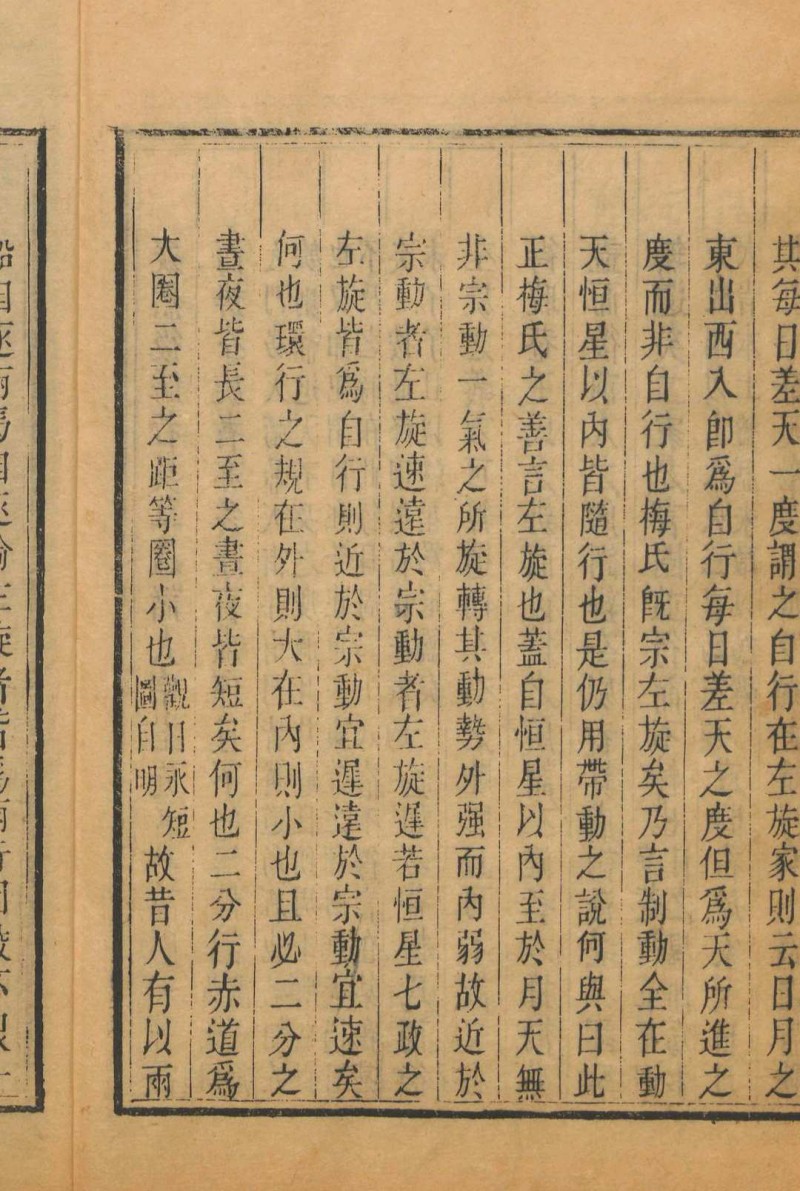 其每日差天一度謂之自行在左旋家則云日月之
東出西入卽爲自行每日差天之度但爲天所進之
度而非自行也梅氏旣宗左旋矣乃言制動全在動
天恒星以內皆隨行也是仍用帶動之說何與曰此
正梅氏之善言左旋也蓋自恒星以內至於月天無
非宗動一氣之所旋轉其動勢外强而內弱故近於
宗動者左旋速遠於宗動者左旋遲若恒星七政之
左旋皆爲自行則近於宗動宜遲遠於宗動宜速矣
何也環行之規在外則大在內則小也且必二分之
晝夜皆長二至之晝夜皆短矣何也二分行赤道爲
大圈二至之距等圈小也觀日永短圖自明故昔人有以兩